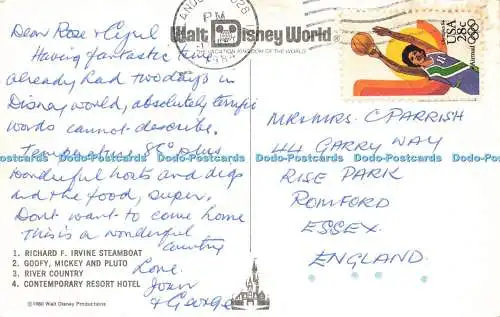 Dear Rose + Cyril
Having fantastic time
already had two days in
Disney world, absolutely terrific
words cannot describe.
Temperatures 80° plus
wonderful hosts and digs
and the food, super.
Dont want to come home
This is a wonderful
country
Love.
Joan
+ George
1. RICHARD F. IRVINE STEAMBOAT
2. GOOFY, MICKEY AND PLUTO
3. RIVER COUNTRY
4. CONTEMPORARY RESORT HOTEL
©1980 Walt Disney Productions
Walt Disney World
THE VACATION KINGDOM OF THE WORLD
PM
1984
USA
28c
Airmail
MR + MRS. C PARRISH
44 GARRY WAY
RISE PARK
ROMFORD
ESSEX
ENGLAND.
Postcards-Update.com